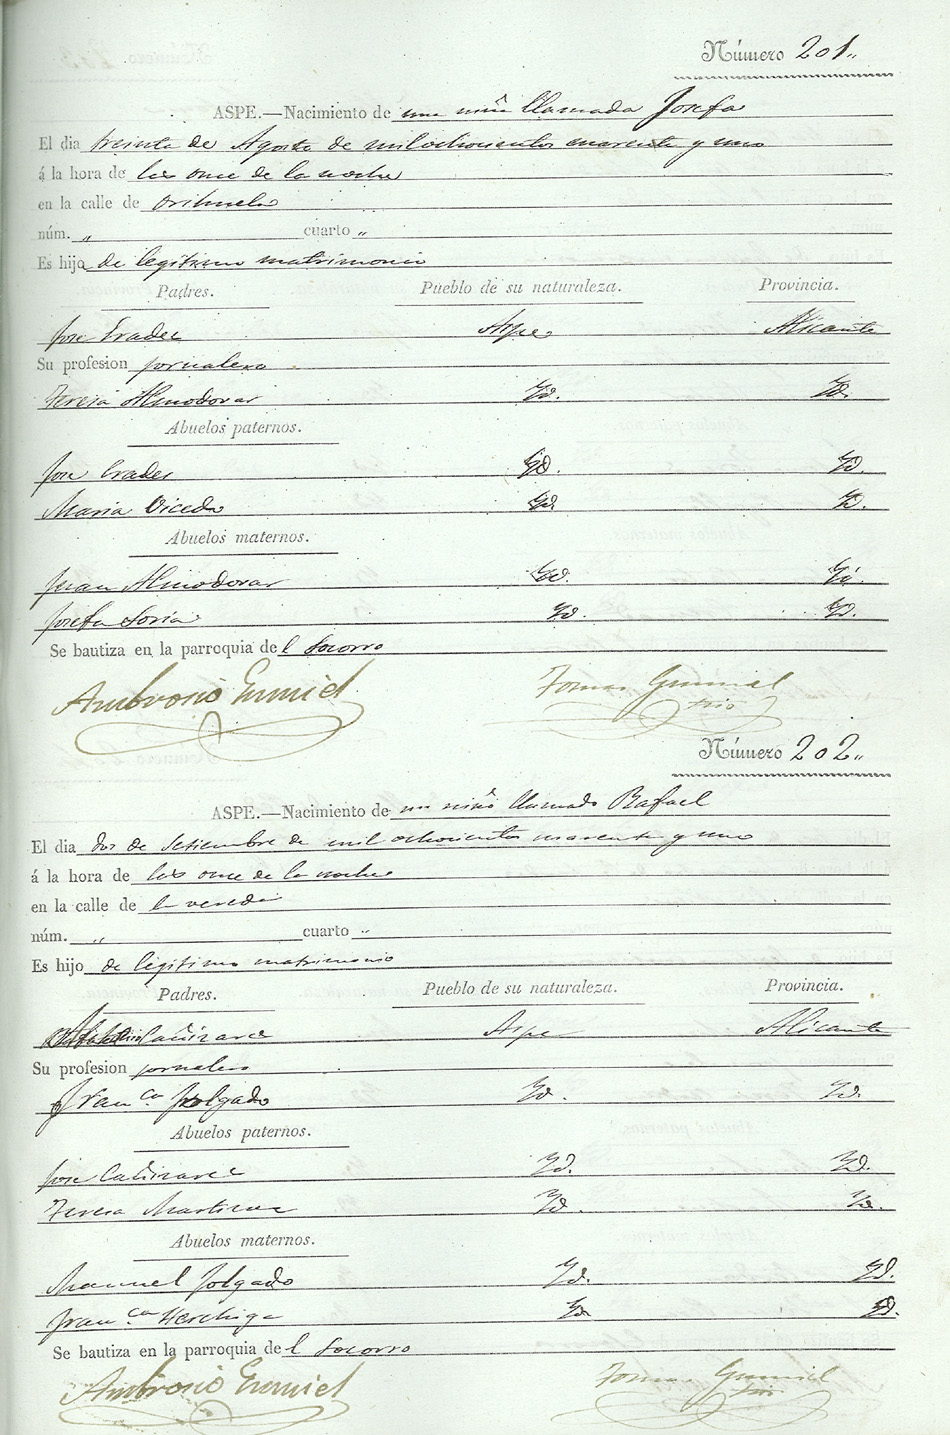 Número 201..
ASPE.—Nacimiento de una niña llamada Josefa
El dia treinta de Agosto de mil ochocientos cuarenta y uno
á la hora de las once de la noche
en la calle de Orihuela
núm. " cuarto "
Es hijo de legitimo matrimonio
Padres. Pueblo de su naturaleza. Provincia.
Jose Erades Aspe Alicante
Su profesion jornalero
Teresa Almodovar Yd. Yd.
Abuelos paternos.
Jose Erades Yd. Yd.
Maria Vicedo Yd. Yd.
Abuelos maternos.
Juan Almodovar Yd. Yd.
Josefa Soria Yd. Yd.
Se bautiza en la parroquia del Socorro
Ambrosio Gumiel Tomas Gumiel
Srio
Número 202..
ASPE.—Nacimiento de un niño llamado Rafael
El dia dos de Setiembre de mil ochocientos cuarenta y uno
á la hora de las once de la noche
en la calle de la vereda
núm. " cuarto "
Es hijo de legitimo matrimonio
Padres. Pueblo de su naturaleza. Provincia.
Cañizares Aspe Alicante
Su profesion jornalero
Fran.ca Folgado Yd. Yd.
Abuelos paternos.
Jose Cañizares Yd. Yd.
Teresa Martinez Yd. Yd.
Abuelos maternos.
Manuel Folgado Yd. Yd.
Fran.ca Yd. Yd.
Se bautiza en la parroquia del Socorro
Ambrosio Gumiel Tomas Gumiel
Srio